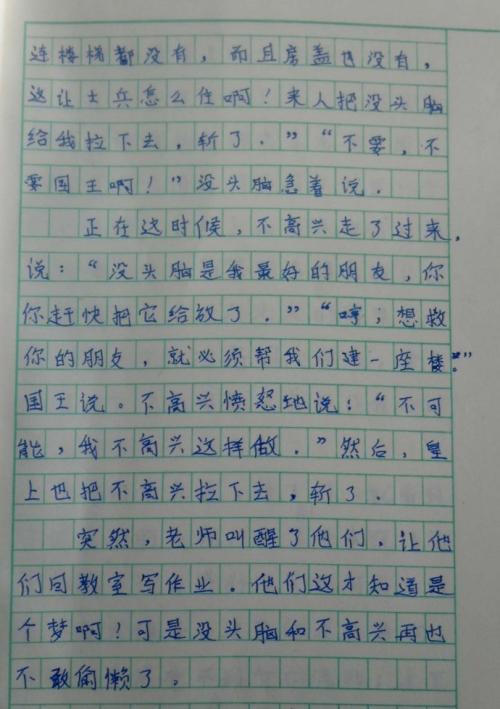 连楼梯都没有，而且房盖也没有，
这让士兵怎么住啊！来人把没头脑
给我拉下去，斩了．”“不要，不
要国王啊！”没头脑急着说．
正在这时候，不高兴走了过来，
说：“没头脑是我最好的朋友，你
你赶快把它给放了．”“哼；想救
你的朋友，就必须帮我们建一座楼。”
国王说。不高兴愤怒地说：“不可
能，我不高兴这样做．”然后，皇
上也把不高兴拉下去，斩了．
突然，老师叫醒了他们，让他
们回教室写作业．他们这才知道是
个梦啊！可是没头脑和不高兴再也
不敢偷懒了。